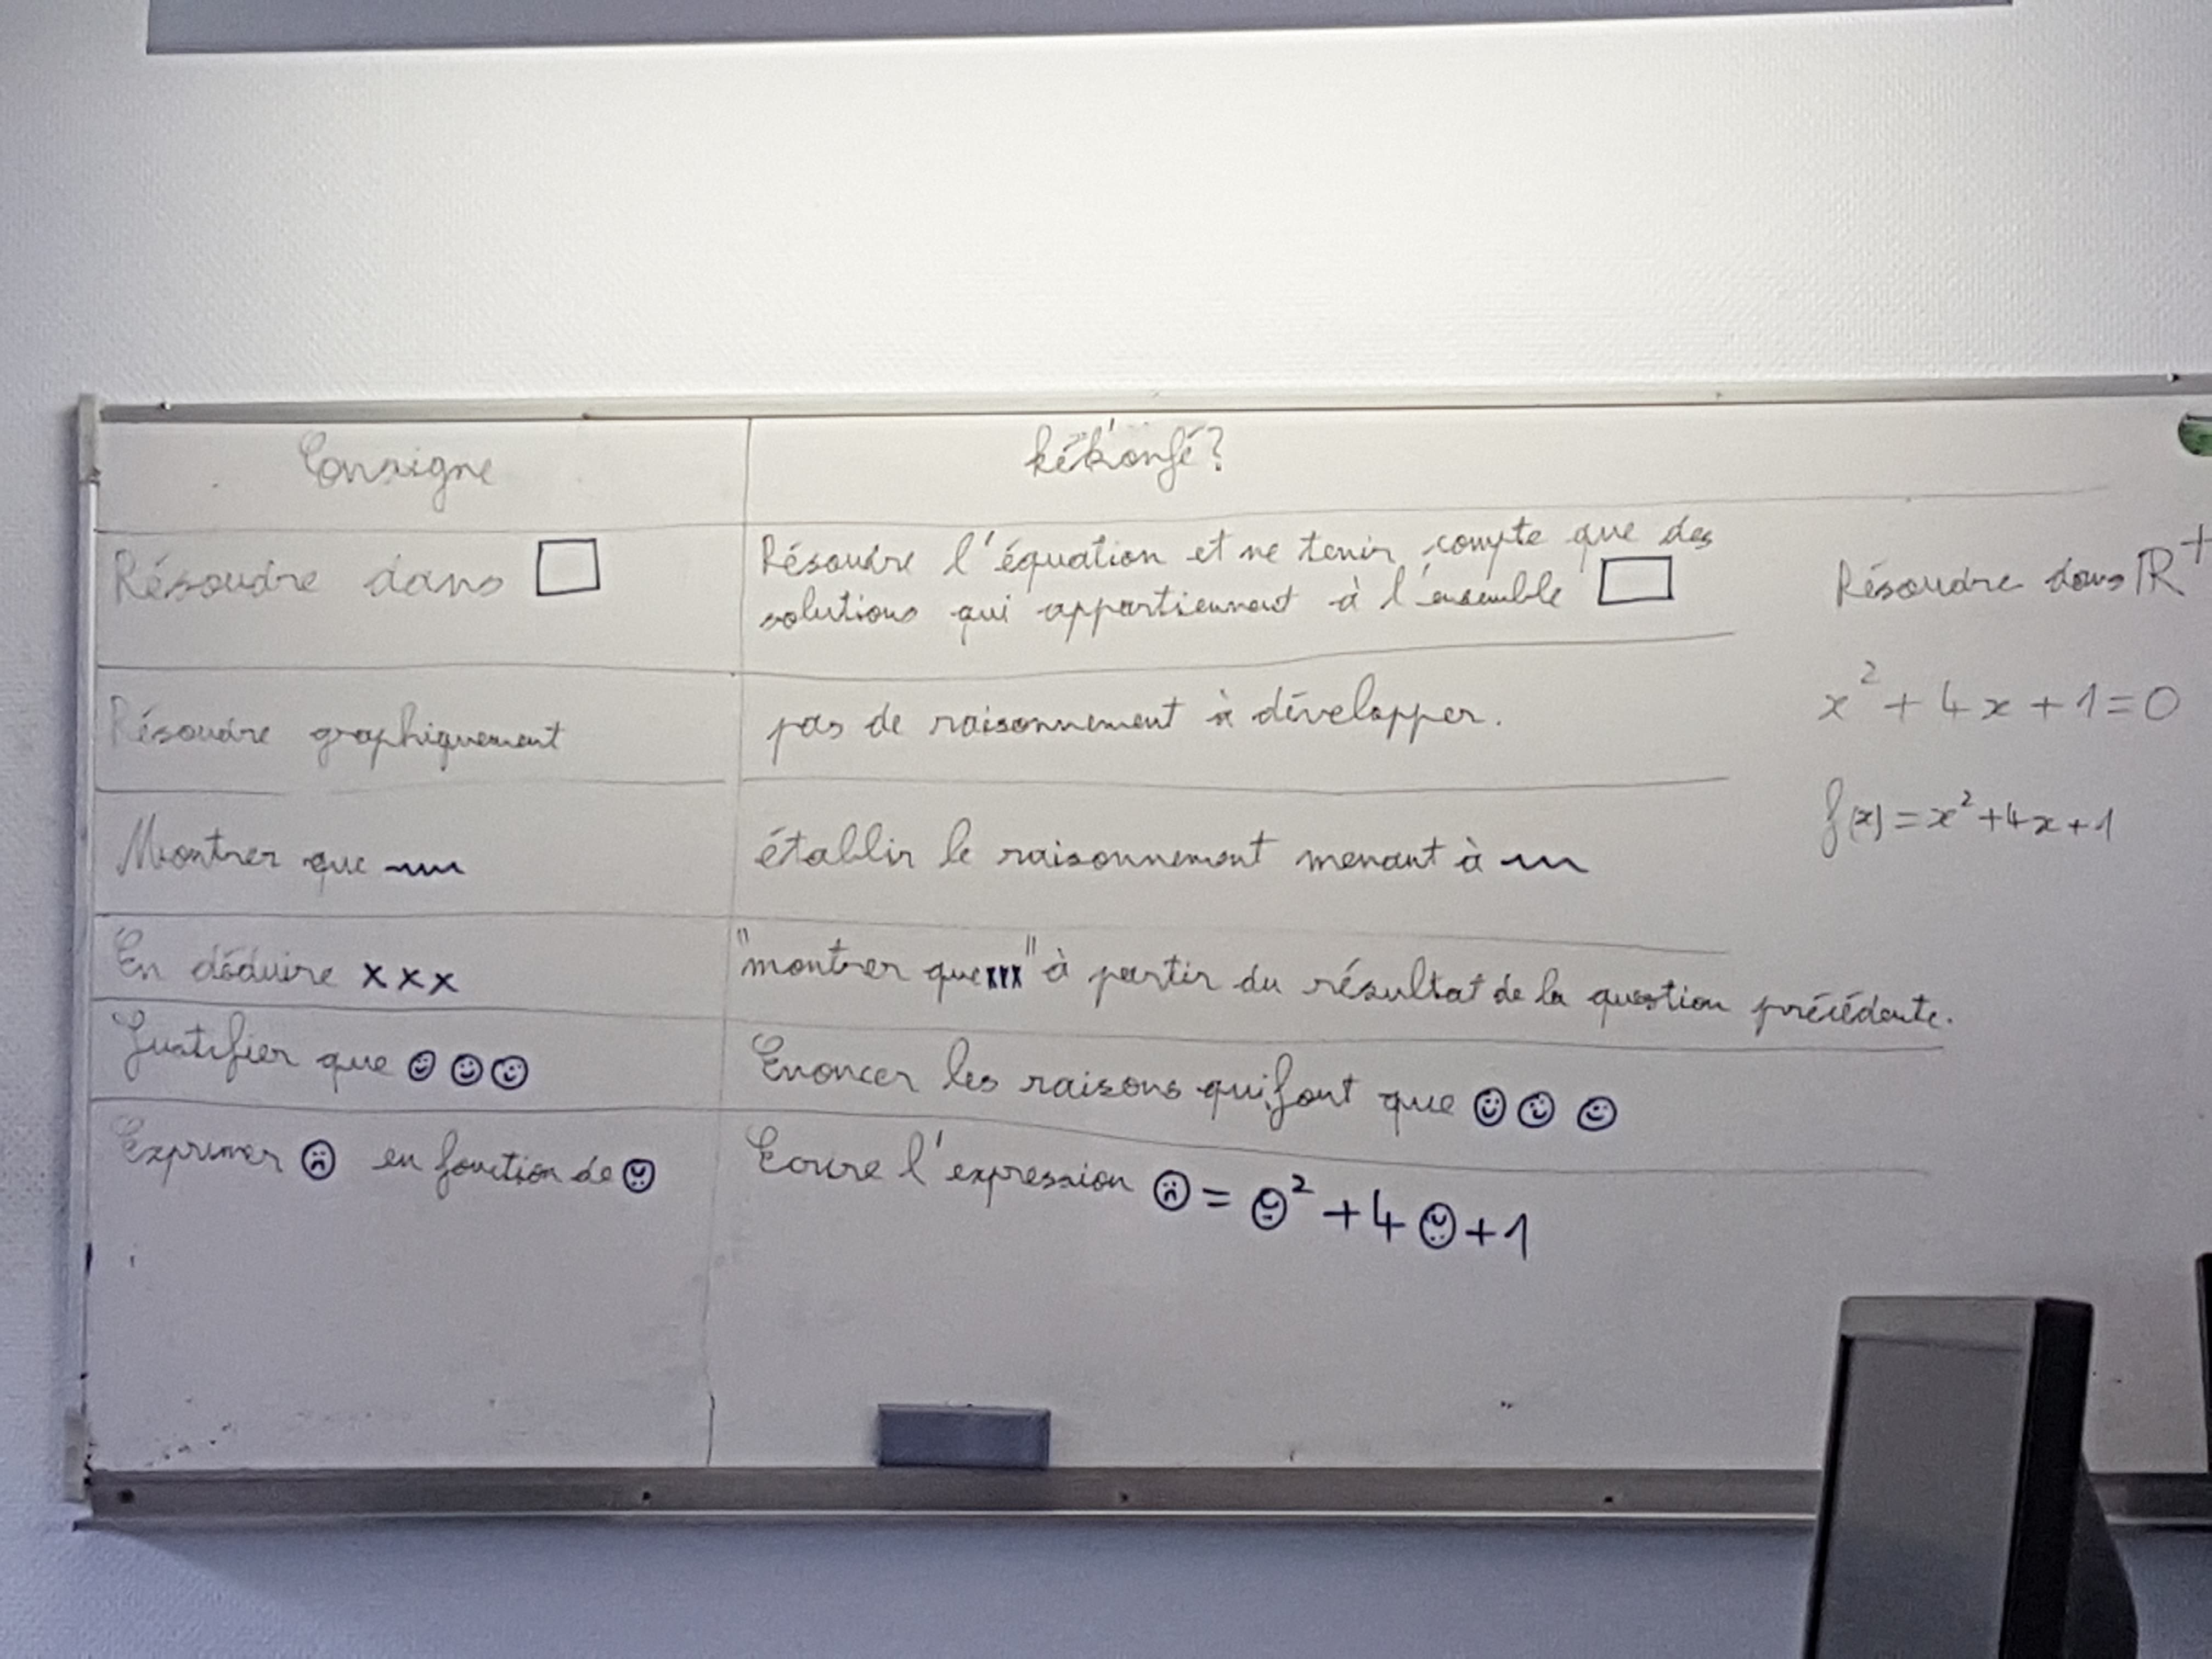 Consigne
kékonfé?
Résoudre dans □
Résoudre l'équation et ne tenir compte que des
solutions qui appartiennent à l'ensemble □
Résoudre graphiquement
pas de raisonnement à développer.
Montrer que ~~~
établir le raisonnement menant à ~~~
En déduire xxx
"montrer que xxx" à partir du résultat de la question précédente.
Justifier que ☺ ☺ ☺
Enoncer les raisons qui font que ☺ ☺ ☺
Exprimer ☹ en fonction de ☺
Ecrire l'expression ☹ = ☺² + 4 ☺ + 1
Résoudre dans ℝ⁺
x² + 4x + 1 = 0
f(x) = x² + 4x + 1